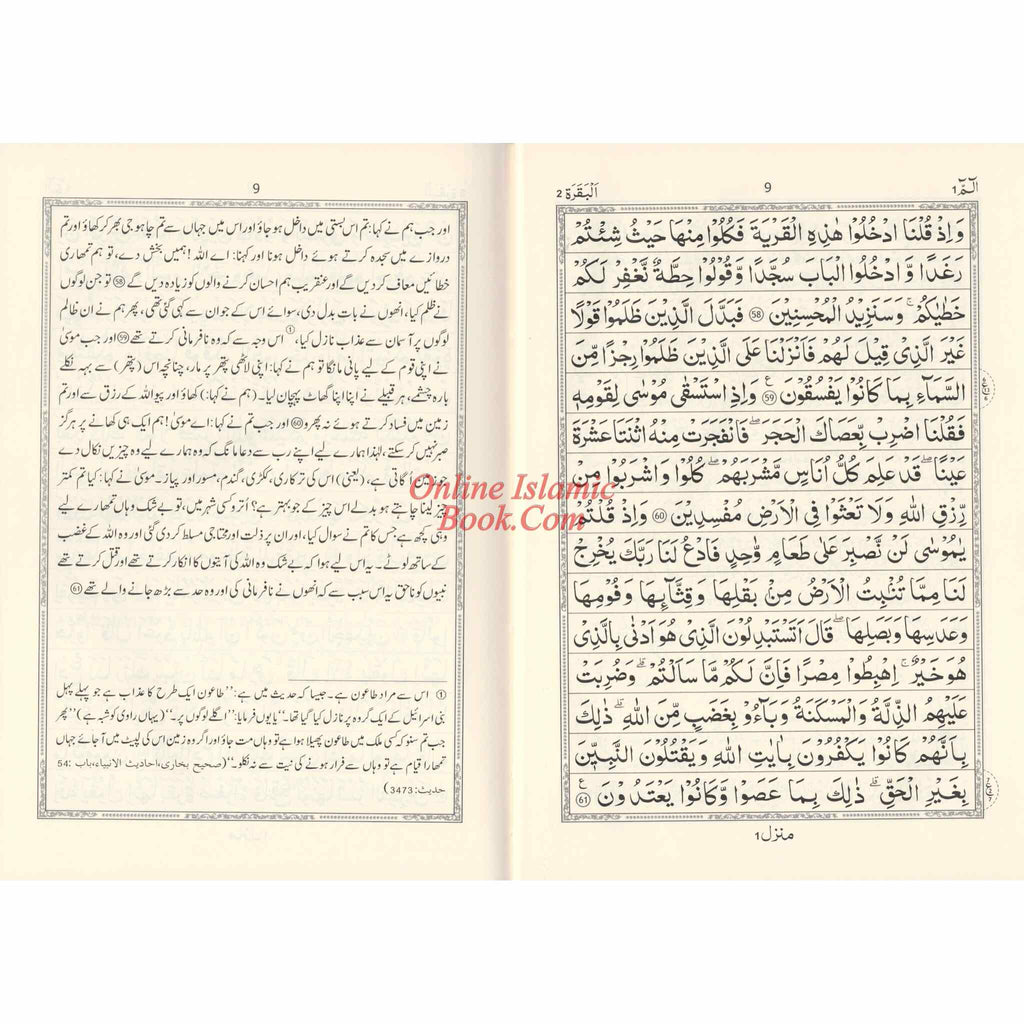 الٓمّٓ 1
9
اَلْبَقَرَة 2
وَ اِذْ قُلْنَا ادْخُلُوْا هٰذِهِ الْقَرْيَةَ فَكُلُوْا مِنْهَا حَيْثُ شِئْتُمْ
رَغَدًا وَّ ادْخُلُوا الْبَابَ سُجَّدًا وَّقُوْلُوْا حِطَّةٌ نَّغْفِرْ لَكُمْ
خَطٰيٰكُمْ ۚ وَسَنَزِيْدُ الْمُحْسِنِيْنَ 58 فَبَدَّلَ الَّذِيْنَ ظَلَمُوْا قَوْلًا
غَيْرَ الَّذِيْ قِيْلَ لَهُمْ فَاَنْزَلْنَا عَلَى الَّذِيْنَ ظَلَمُوْا رِجْزًا مِّنَ
السَّمَآءِ بِمَا كَانُوْا يَفْسُقُوْنَ ع 59 وَاِذِ اسْتَسْقٰى مُوْسٰى لِقَوْمِهٖ
فَقُلْنَا اضْرِبْ بِّعَصَاكَ الْحَجَرَ ۖ فَانْفَجَرَتْ مِنْهُ اثْنَتَا عَشْرَةَ
عَيْنًا ۖ قَدْ عَلِمَ كُلُّ اُنَاسٍ مَّشْرَبَهُمْ ۖ كُلُوْا وَاشْرَبُوْا مِنْ
رِّزْقِ اللّٰهِ وَلَا تَعْثَوْا فِي الْاَرْضِ مُفْسِدِيْنَ 60 وَاِذْ قُلْتُمْ
يٰمُوْسٰى لَنْ نَّصْبِرَ عَلٰى طَعَامٍ وَّاحِدٍ فَادْعُ لَنَا رَبَّكَ يُخْرِجْ
لَنَا مِمَّا تُنْۢبِتُ الْاَرْضُ مِنْۢ بَقْلِهَا وَقِثَّآئِهَا وَفُوْمِهَا
وَعَدَسِهَا وَبَصَلِهَا ۖ قَالَ اَتَسْتَبْدِلُوْنَ الَّذِيْ هُوَ اَدْنٰى بِالَّذِيْ
هُوَ خَيْرٌ ۚ اِهْبِطُوْا مِصْرًا فَاِنَّ لَكُمْ مَّا سَاَلْتُمْ ۗ وَضُرِبَتْ
عَلَيْهِمُ الذِّلَّةُ وَالْمَسْكَنَةُ وَبَآءُوْ بِغَضَبٍ مِّنَ اللّٰهِ ۗ ذٰلِكَ
بِاَنَّهُمْ كَانُوْا يَكْفُرُوْنَ بِاٰيٰتِ اللّٰهِ وَيَقْتُلُوْنَ النَّبِيّٖنَ
بِغَيْرِ الْحَقِّ ۗ ذٰلِكَ بِمَا عَصَوْا وَّكَانُوْا يَعْتَدُوْنَ ع 61
منزل 1
9
اور جب ہم نے کہا: تم اس بستی میں داخل ہو جاؤ اور اس میں جہاں سے تم چاہو جی بھر کر کھاؤ اور تم
دروازے میں سجدہ کرتے ہوئے داخل ہونا اور کہنا: اے اللہ! ہمیں بخش دے، تو ہم تمھاری
خطائیں معاف کر دیں گے اور عنقریب ہم احسان کرنے والوں کو زیادہ دیں گے 58 تو جن لوگوں
نے ظلم کیا، انھوں نے بات بدل دی، سوائے اس کے جو ان سے کہی گئی تھی، پھر ہم نے ان ظالم
لوگوں پر آسمان سے عذاب نازل کیا، ① اس وجہ سے کہ وہ نافرمانی کرتے تھے 59 اور جب موسیٰ
نے اپنی قوم کے لیے پانی مانگا تو ہم نے کہا: اپنی لاٹھی پتھر پر مار، چنانچہ اس (پتھر) سے بہہ نکلے
بارہ چشمے، ہر قبیلے نے اپنا اپنا گھاٹ پہچان لیا۔ (ہم نے کہا:) کھاؤ اور پیو اللہ کے رزق سے اور تم
زمین میں فساد کرتے ہوئے نہ پھرو 60 اور جب تم نے کہا: اے موسیٰ! ہم ایک ہی کھانے پر ہرگز
صبر نہیں کر سکتے، لہٰذا ہمارے لیے اپنے رب سے دعا مانگ کہ وہ ہمارے لیے وہ چیزیں نکال دے
جو زمین اُگاتی ہے، (یعنی) اس کی ترکاری، ککڑی، گندم، مسور اور پیاز۔ موسیٰ نے کہا: کیا تم کمتر
چیز لینا چاہتے ہو بدلے اس چیز کے جو بہتر ہے؟ اُترو کسی شہر میں، تو بے شک وہاں تمھارے لیے
وہی کچھ ہے جس کا تم نے سوال کیا، اور ان پر ذلت اور محتاجی مسلط کر دی گئی اور وہ اللہ کے غضب
کے ساتھ لوٹے۔ یہ اس لیے ہوا کہ بے شک وہ اللہ کی آیتوں کا انکار کرتے تھے اور قتل کرتے تھے
نبیوں کو ناحق یہ اس سبب سے کہ انھوں نے نافرمانی کی اور وہ حد سے بڑھ جانے والے تھے 61
① اس سے مراد طاعون ہے۔ جیسا کہ حدیث میں ہے: ’’طاعون ایک طرح کا عذاب ہے جو پہلے پہل
بنی اسرائیل کے ایک گروہ پر نازل کیا گیا تھا۔‘‘ یا یوں فرمایا: ’’اگلے لوگوں پر۔‘‘ (یہاں راوی کو شبہ ہے) ’’پھر
جب تم سنو کہ کسی ملک میں طاعون پھیلا ہوا ہے تو وہاں مت جاؤ اور اگر وہ زمین اس کی لپیٹ میں آ جائے جہاں
تمھارا قیام ہے تو وہاں سے فرار ہونے کی نیت سے نہ نکلو۔‘‘ (صحیح بخاری، احادیث الانبیاء، باب: 54
حدیث: 3473)
Online Islamic
Book.Com